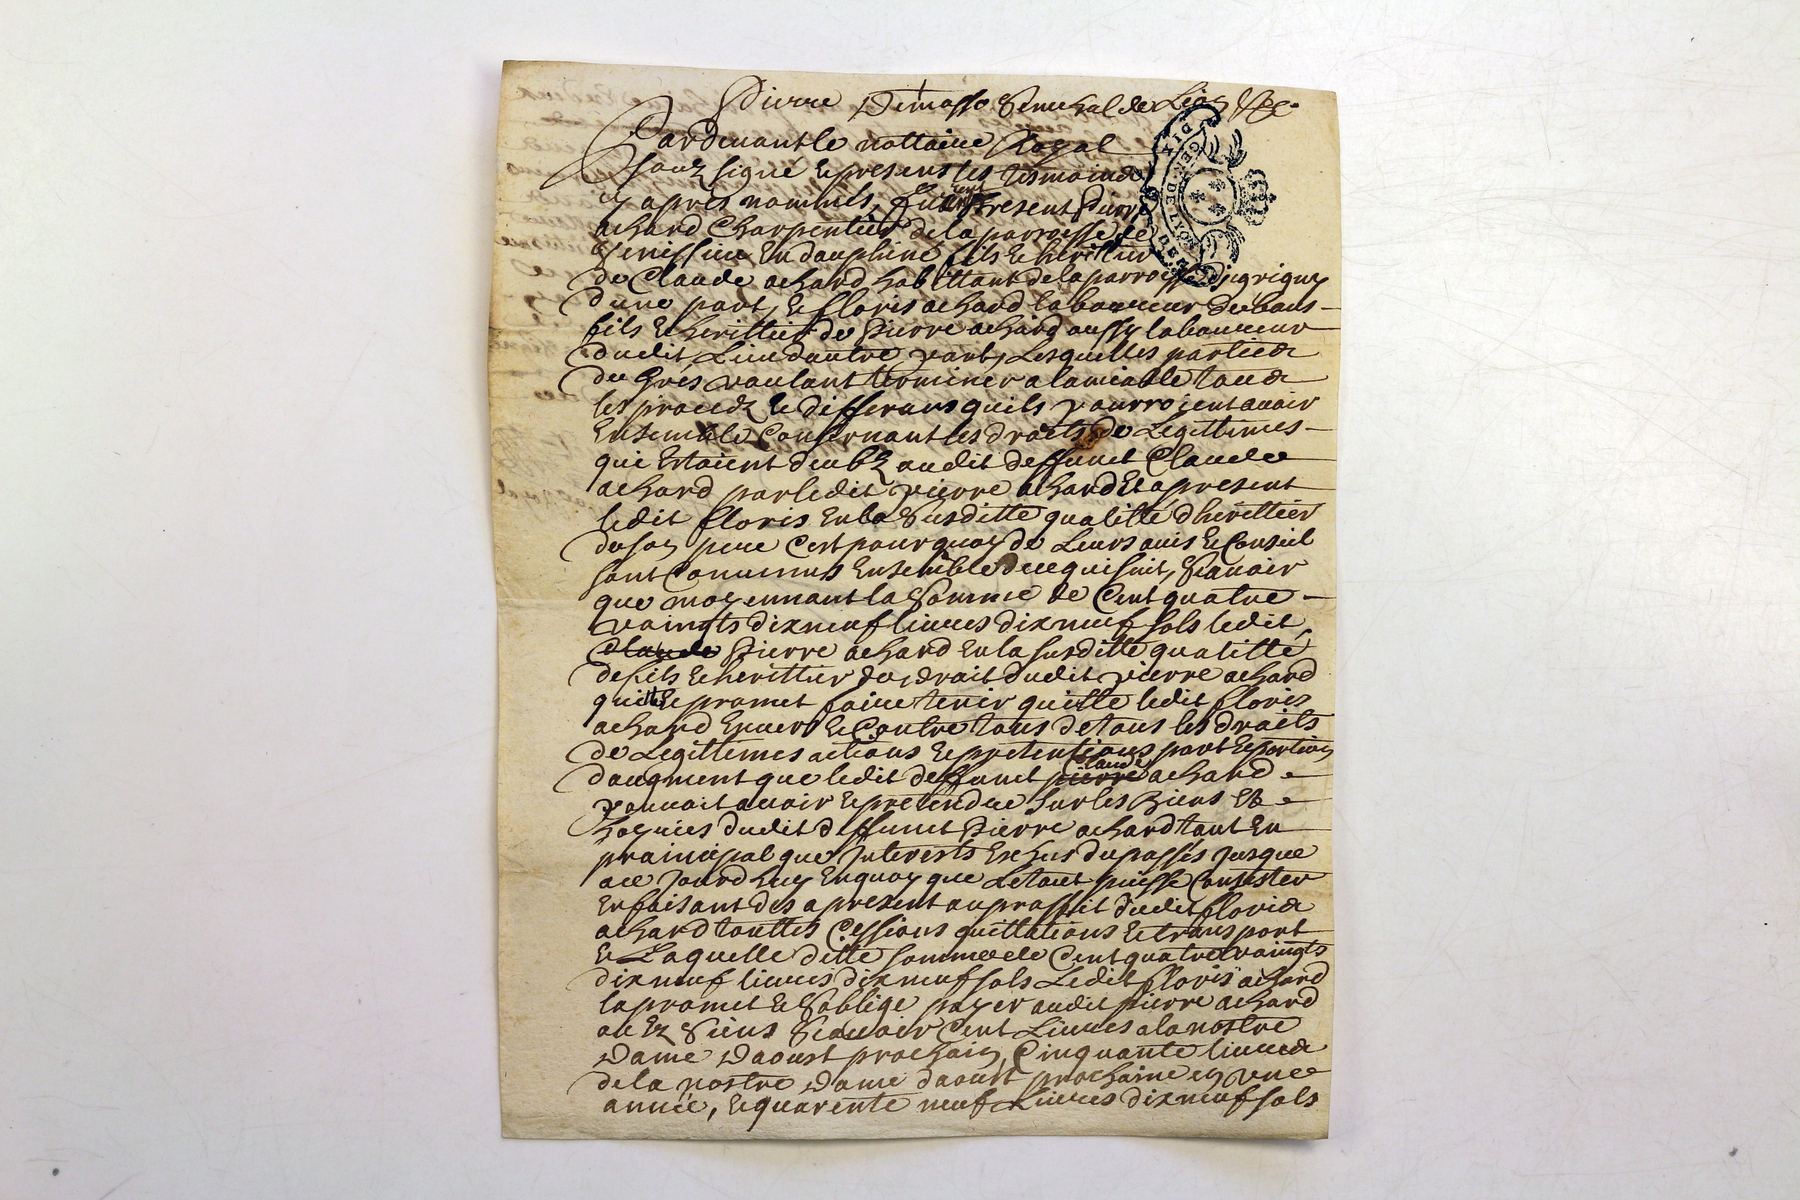 Pierre Demasso Senechal de Lion &c
Pardevant le nottaire Royal
souz signé et presents les tesmoins
cy apres nommés, furent Present Pierre
achard Charpentier de la parroisse de
En dauphiné fils et heritier
de Claude achard habittant de la parroisse
dune part, et floris achard laboureur
fils et herittier de Pierre achard aussy laboureur
dudit Lieu dautre part, Lesquelles parties
de Grés voulant terminer a lamiable tous
les procedz et differans quils pourroient avoir
Ensemble Consernant les droits de Legitimes
qui Estoient deubz audit deffunct Claude
achard par ledit pierre achard Et apresent
ledit floris En la Susditte qualitté dherittier
de son pere Cest pourquoy de Leurs avis et Conseil
sont Convenus Ensemble de ce qui suit, Scavoir
que moyennant la Somme de Cent quatre
vaingts dix neuf livres dix neuf sols ledit
Claude Pierre achard En la susditte qualitté
de fils et herittier du droit dudit pierre achard
quitte et promet faire tenir quitte ledit floris
achard Envers et Contre tous de tous les droits
de Legittimes actions et pretentions part et portion
daugment que ledit deffunct pierre Claude achard
pouvoit avoir et pretendre sur les Biens Et
hoyries dudit deffunct Pierre achard tant En
praincipal que Interests Eschus du passés jusque
a ce jourdhuy En quoy que Letout puisse Consister
En faisant des a present au proffit dudit floris
achard touttes Cessions quittations et transport
et Laquelle ditte somme de Cent quatre vaingts
dix neuf livres dix neuf sols Ledit floris achard
la promet et Soblige payer audit pierre achard
ou Ez Siens Scavoir Cent Livres a la nostre
Dame Daoust prochain, Cinquante livres
de la nostre Dame daoust prochaine en une
année, et quarente neuf Livres dix neuf sols